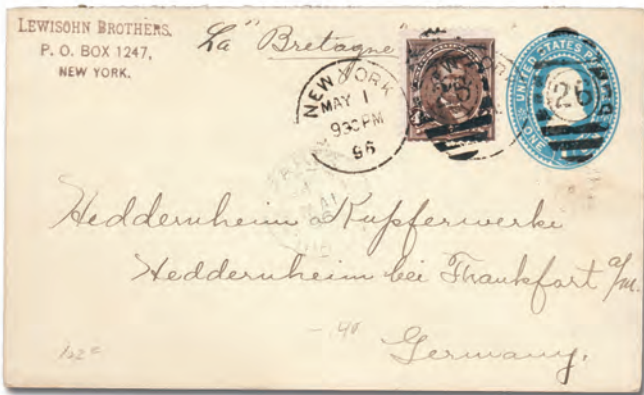 LEWISOHN BROTHERS,
P. O. BOX 1247,
NEW YORK.
La "Bretagne"
NEW YORK
MAY 1
930PM
96
UNITED STATES
ONE
26
Heddernheim Kupferwerke
Heddernheim bei Frankfort a/m.
Germany.